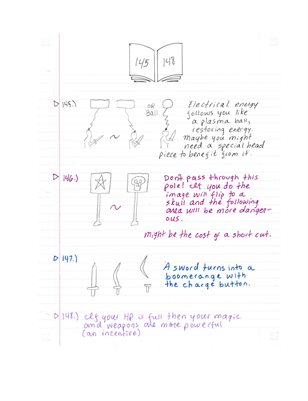 145 148
145.) OR Ball Electrical energy
follows you like
a plasma ball,
restoring energy
maybe you might
need a special head
piece to benefit from it.
146.) Don't pass through this
pole! If you do the
image will flip to a
skull and the following
area will be more danger-
ous.
might be the cost of a short cut.
147.) A sword turns into a
boomerange with
the charge button.
148.) If your HP is full then your magic
and weapons are more powerful
(an incentive)